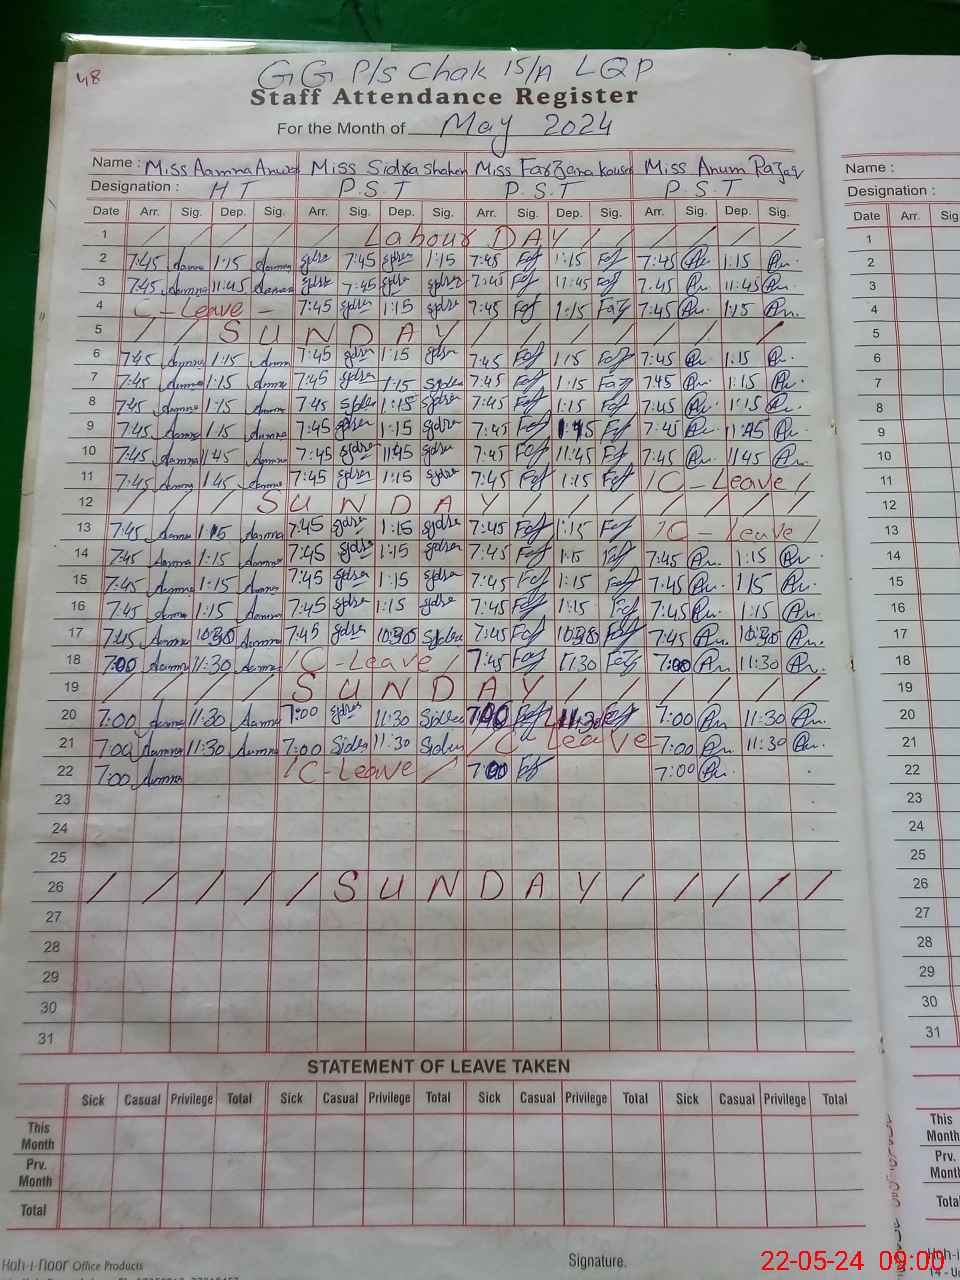 48
GG P/s Chak 15/A LQP
Staff Attendance Register
For the Month of May 2024
Name : Miss Aamna Anwar Miss Sidra Shaheen Miss Farzana Kousar Miss Anum Razaq Name :
Designation : H T P.S.T P.S.T P.S.T Designation :
Date Arr. Sig. Dep. Sig. Arr. Sig. Dep. Sig. Arr. Sig. Dep. Sig. Arr. Sig. Dep. Sig. Date Arr. Sig
1 / / / / / Labour DAY / / / / / / 1
2 7:45 Aamna 1:15 Aamna Sidra 7:45 Sidra 1:15 7:45 Faf 1:15 Faf 7:45 An. 1:15 An. 2
3 7:45 Aamna 11:45 Aamna Sidra 7:45 Sidra 7:45 Faf 11:45 Faf 7:45 An. 11:45 An. 3
4 C-Leave - 7:45 Sidra 1:15 Sidra 7:45 Faf 1:15 Faz 7:45 An. 1:15 An. 4
5 / / SUNDAY / / / / / / / / 5
6 7:45 Aamna 1:15 Aamna 7:45 Sidra 1:15 Sidra 7:45 Faf 1:15 Faf 7:45 An. 1:15 An. 6
7 7:45 Aamna 1:15 Aamna 7:45 Sidra 1:15 Sidra 7:45 Faf 1:15 Faz 7:45 An. 1:15 An. 7
8 7:45 Aamna 1:15 Aamna 7:45 Sidra 1:15 Sidra 7:45 Faf 1:15 Faf 7:45 An. 1:15 An. 8
9 7:45 Aamna 1:15 Aamna 7:45 Sidra 1:15 Sidra 7:45 Faf Faf 7:45 An. An. 9
10 7:45 Aamna 11:45 Aamna 7:45 Sidra 11:45 Sidra 7:45 Faf 11:45 Faf 7:45 An. 11:45 An. 10
11 7:45 Aamna 1:45 Aamna 7:45 Sidra 1:15 Sidra 7:45 Faf 1:15 Faf / C-Leave / 11
12 / / / SUNDAY / / / / / / / 12
13 7:45 Aamna 1:15 Aamna 7:45 Sidra 1:15 Sidra 7:45 Faf 1:15 Faf / C-Leave / 13
14 7:45 Aamna 1:15 Aamna 7:45 Sidra 1:15 Sidra 7:45 Faf 1:15 Faf 7:45 An. 1:15 An. 14
15 7:45 Aamna 1:15 Aamna 7:45 Sidra 1:15 Sidra 7:45 Faf 1:15 Faf 7:45 An. 1:15 An. 15
16 7:45 Aamna 1:15 Aamna 7:45 Sidra 1:15 Sidra 7:45 Faf 1:15 Faf 7:45 An. 1:15 An. 16
17 7:45 Aamna 10:30 Aamna 7:45 Sidra 10:30 Sidra 7:45 Faf 10:30 Faf 7:45 An. 10:30 An. 17
18 7:00 Aamna 11:30 Aamna / C-Leave / 7:45 Faf 11:30 Faz 7:00 An. 11:30 An. 18
19 / / / / SUNDAY / / / / / / 19
20 7:00 Aamna 11:30 Aamna 7:00 Sidra 11:30 Sidra 7:00 Faf 11:30 Faf 7:00 An. 11:30 An. 20
21 7:00 Aamna 11:30 Aamna 7:00 Sidra 11:30 Sidra / C Leave 7:00 An. 11:30 An. 21
22 7:00 Aamna / C-Leave / 7:00 Faf 7:00 An. 22
23 23
24 24
25 25
26 / / / / / SUNDAY / / / / / 26
27 27
28 28
29 29
30 30
31 31
STATEMENT OF LEAVE TAKEN
Sick Casual Privilege Total Sick Casual Privilege Total Sick Casual Privilege Total Sick Casual Privilege Total
This Month This Month
Prv. Month Prv. Month
Total Total
Koh-i-noor Office Products Signature.
22-05-24 09:00